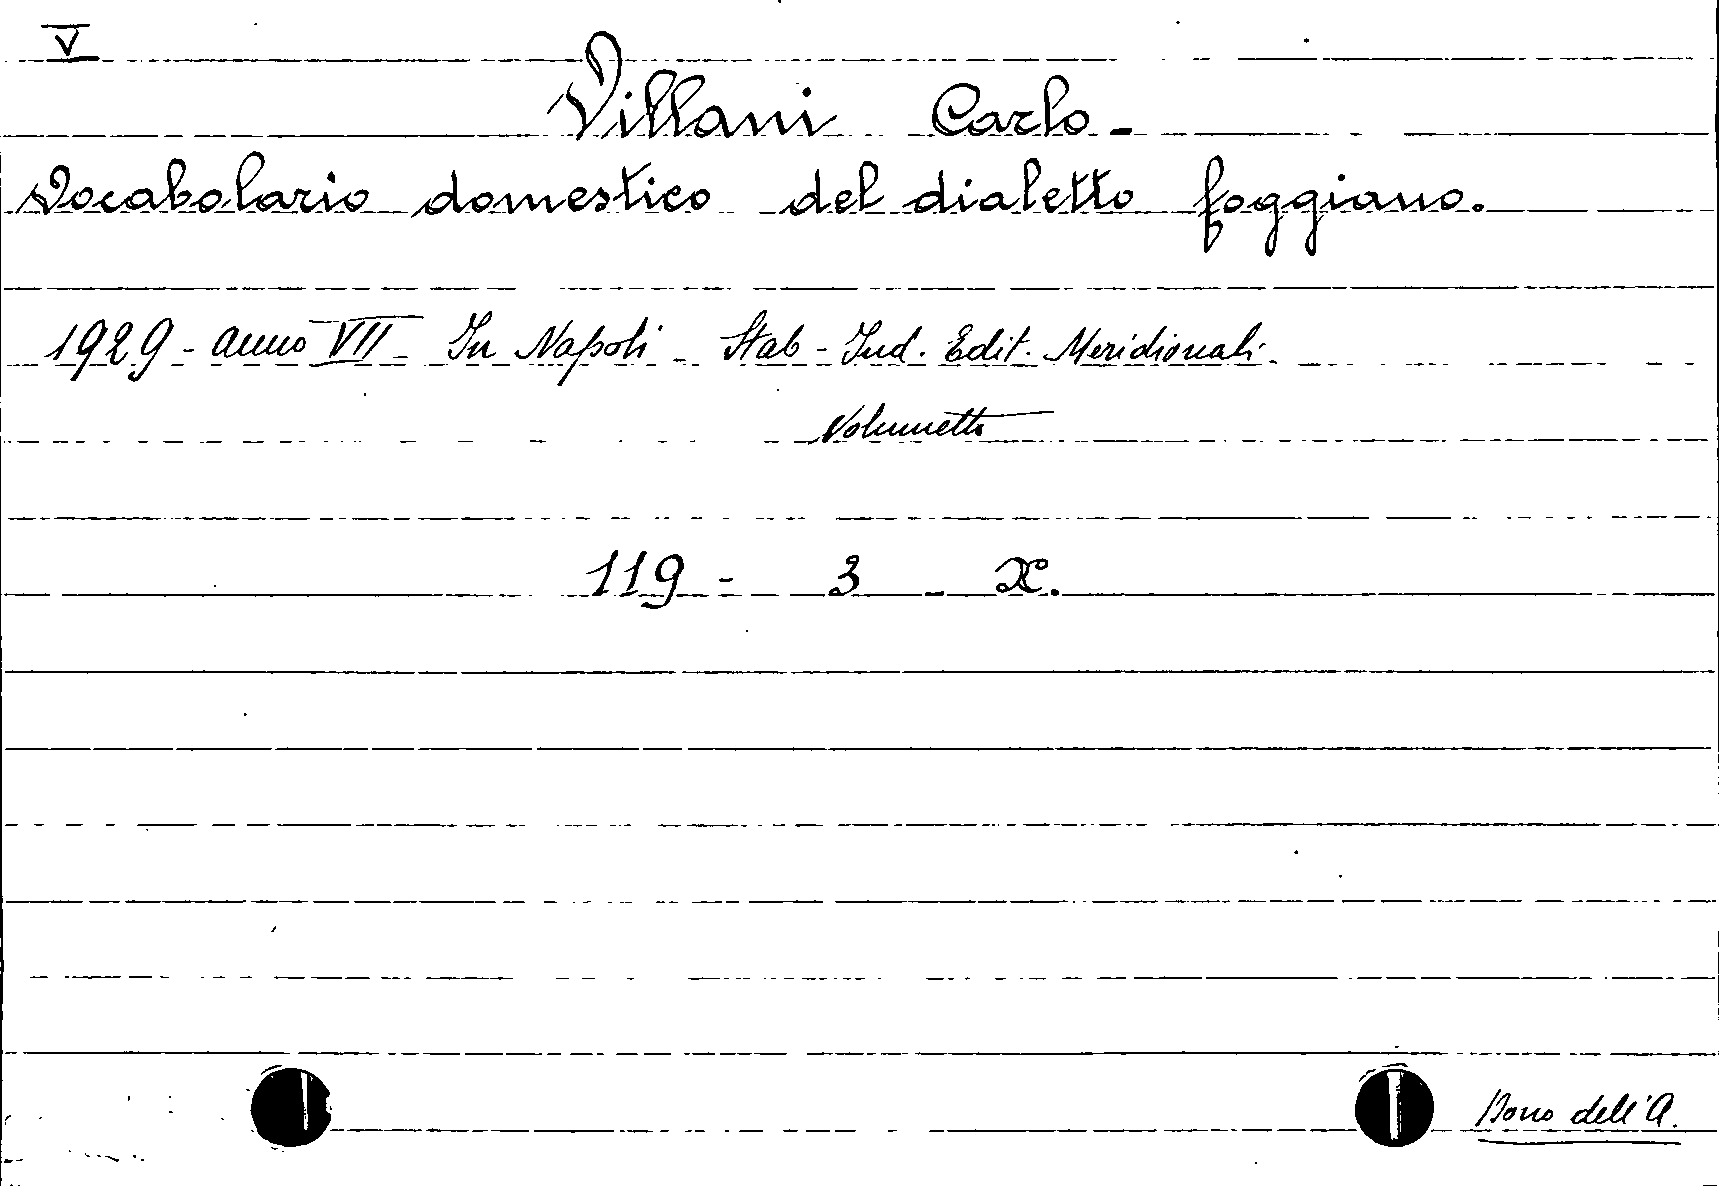 V
Villani Carlo -
Vocabolario domestico del dialetto foggiano.
1929 - anno VII - In Napoli - Stab - Ind. Edit. Meridionali -
Volumetto
119 - 3 - X.
Dono dell'A.